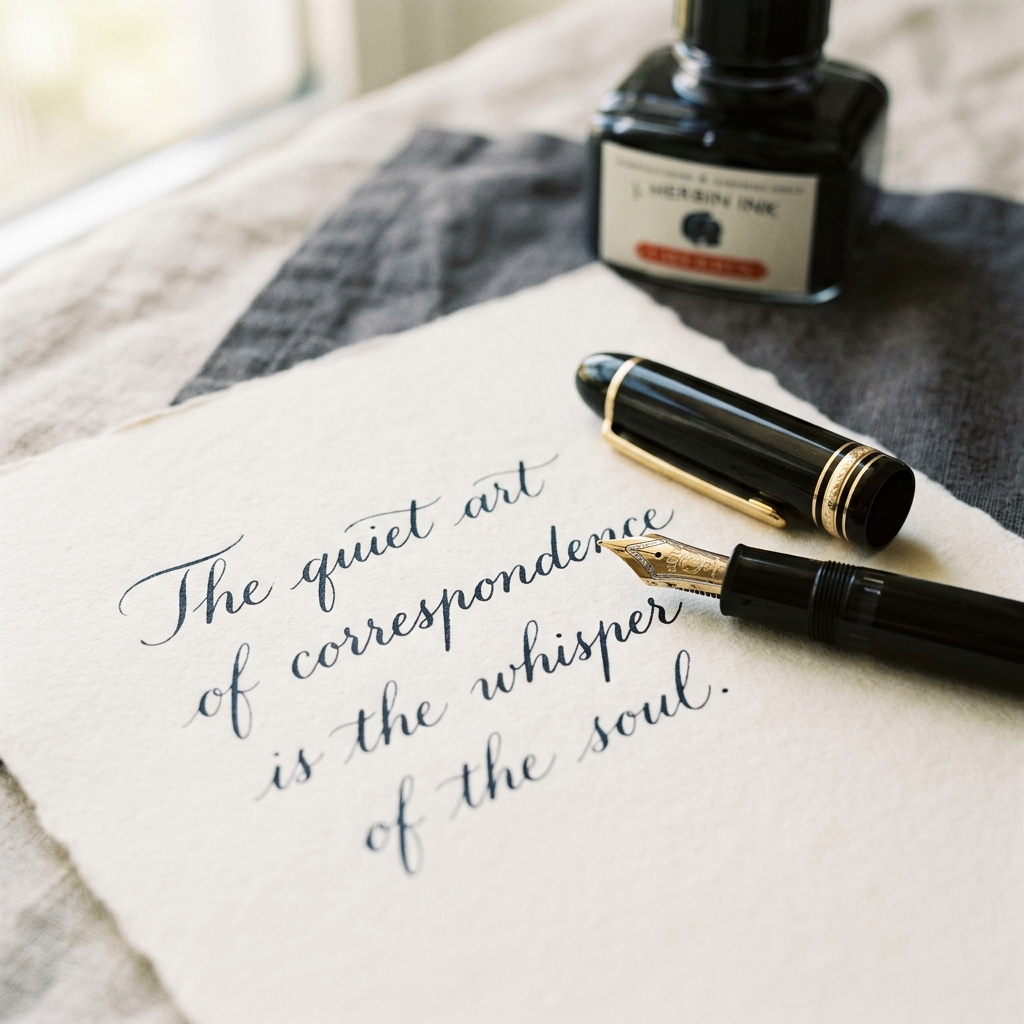 J. HERBIN INK
The quiet art
of correspondence
is the whisper
of the soul.